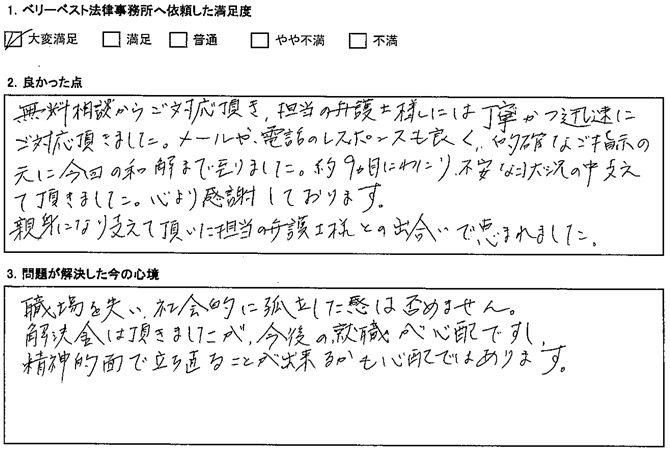 1. ベリーベスト法律事務所へ依頼した満足度
大変満足 満足 普通 やや不満 不満
2. 良かった点
無料相談からご対応頂き、担当の弁護士様には丁寧かつ迅速に
ご対応頂きました。メールや、電話のレスポンスも良く、的確なご指示の
元に今回の和解まで至りました。約9ヵ月にわたり、不安な状況の中支え
て頂きました。心より感謝しております。
親身になり支えて頂いた担当の弁護士様との出合いで恵まれました。
3. 問題が解決した今の心境
職場を失い、社会的に孤立した感は否めません。
解決金は頂きましたが、今後の就職が心配ですし、
精神的面で立ち直ることが出来るかも心配ではあります。